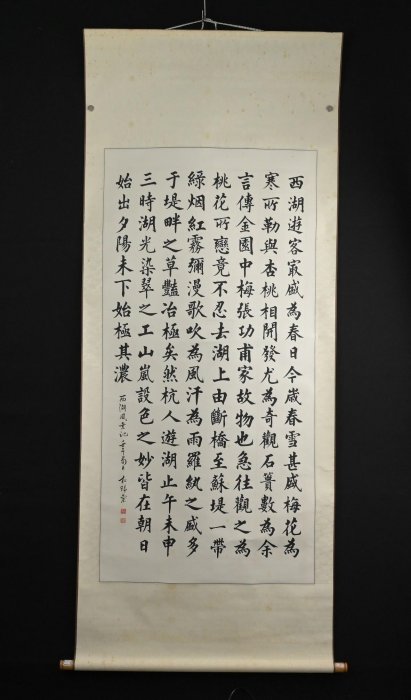 西湖遊客㝡盛為春日今歲春雪甚盛梅花為
寒所勒與杏桃相開發尤為奇觀石簣數為余
言傳金園中梅張功甫家故物也急往觀之為
桃花所戀竟不忍去湖上由斷橋至蘇堤一帶
綠烟紅霧彌漫歌吹為風汗為雨羅紈之盛多
于堤畔之草豔冶極矣然杭人遊湖止午未申
三時湖光染翠之工山嵐設色之妙皆在朝日
始出夕陽未下始極其濃
西湖